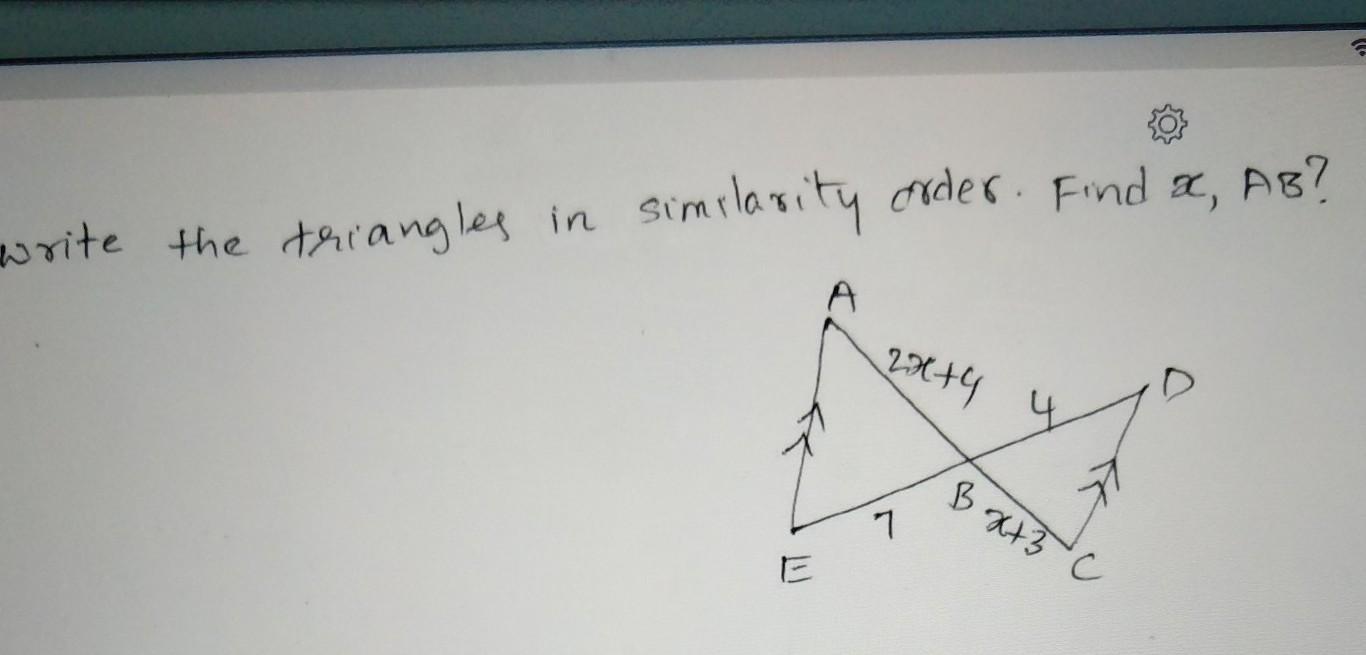 write the triangles in similarity order. Find x, AB?
A
2x+4
D
4
B
7
x+3
E
C